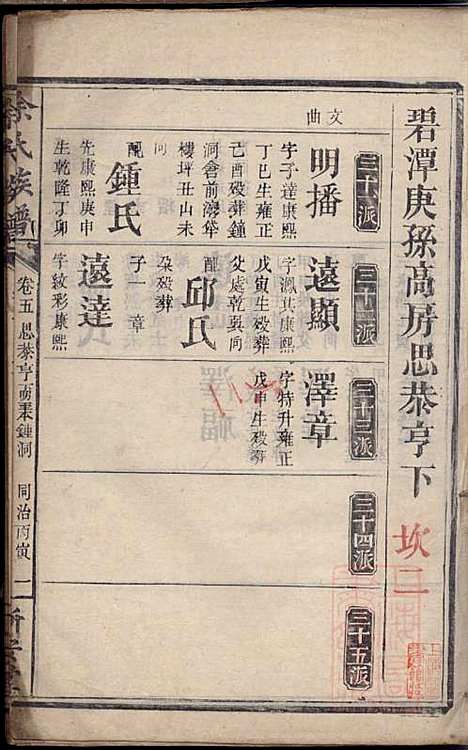 碧潭庚孫高房思恭亨下
坎二
三十一派
三十二派
三十三派
三十四派
三十五派
文曲
明播
字子達康熙
丁巳生雍正
己酉歿葬鐘
洞會前灣犂
樓坪丑山未
向
配
鍾氏
先康熙庚申
生乾隆丁卯
遠顯
字溉其康熙
戊寅生歿葬
父處乾巽向
配
邱氏
歿葬
子一章
遠達
字紋彩康熙
澤章
字特升雍正
戊申生歿葬
徐氏族譜
卷五思恭亨
鍾洞
同治丙寅
二